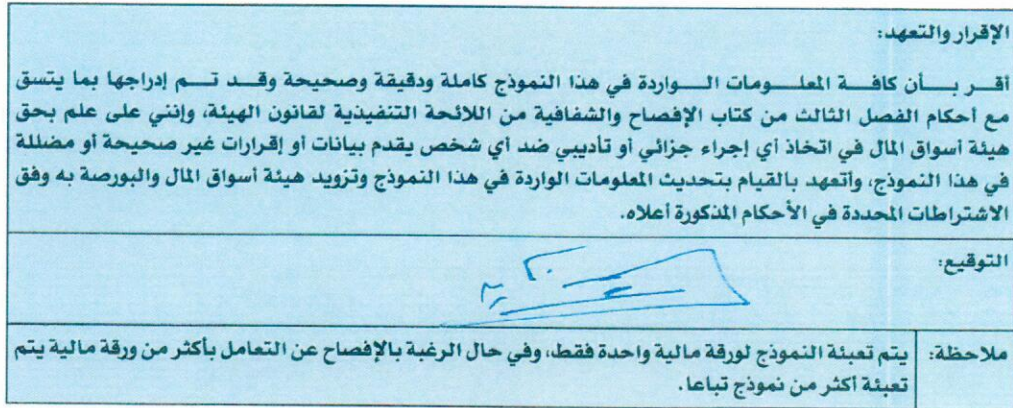 الإقرار والتعهد:
أقـــر بـــــأن كافـــة المعلــــومات الــــواردة في هذا النموذج كاملة ودقيقة وصحيحة وقــد تـــم إدراجها بما يتسق
مع أحكام الفصل الثالث من كتاب الإفصاح والشفافية من اللائحة التنفيذية لقانون الهيئة، وإنني على علم بحق
هيئة أسواق المال في اتخاذ أي إجراء جزائي أو تأديبي ضد أي شخص يقدم بيانات أو إقرارات غير صحيحة أو مضللة
في هذا النموذج، وأتعهد بالقيام بتحديث المعلومات الواردة في هذا النموذج وتزويد هيئة أسواق المال والبورصة به وفق
الاشتراطات المحددة في الأحكام المذكورة أعلاه.
التوقيع:
ملاحظة: يتم تعبئة النموذج لورقة مالية واحدة فقط، وفي حال الرغبة بالإفصاح عن التعامل بأكثر من ورقة مالية يتم
تعبئة أكثر من نموذج تباعا.